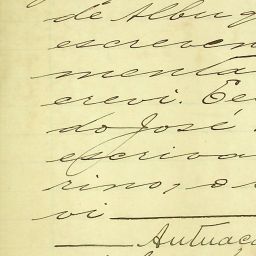 de Albuq
escreven
menta
crevi. Eu
do José
escriva
rino, o
vi
Autuaç